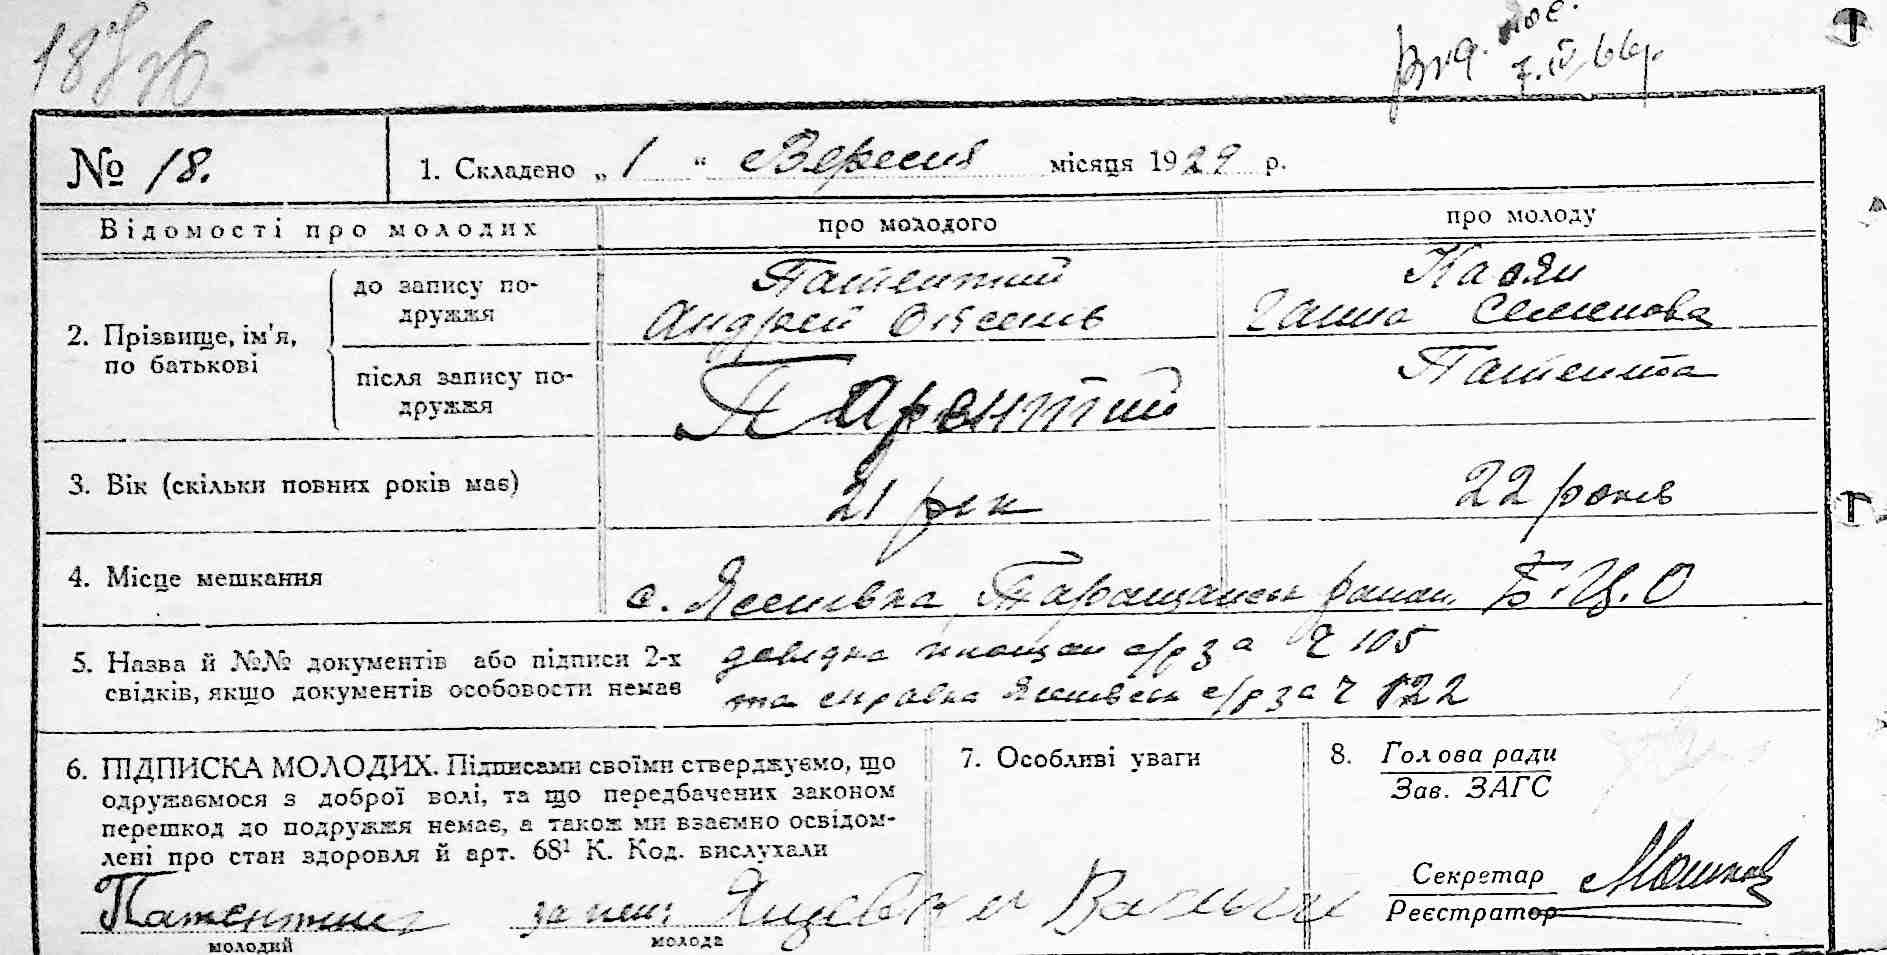 18
7.IV.66р.
№ 18.
1. Складено „ 1 “ Вересня місяця 1929 р.
Відомості про молодих
про молодого
про молоду
2. Прізвище, ім'я, по батькові
до запису по-
дружжя
Патентий
Андрей Овсеєнів
Касян
Ганна Семенова
після запису по-
дружжя
Парентий
Патента
3. Вік (скільки повних років має)
21 рік
22 років
4. Місце мешкання
с. Ясенівка Таращанськ район. Б.Ц.О
5. Назва й №№ документів або підписи 2-х
свідків, якщо документів особовости немає
довідка с/р за Ч 105
та справка с/р за Ч 122
6. ПІДПИСКА МОЛОДИХ. Підписами своїми стверджуємо, що
одружаємося з доброї волі, та що передбачених законом
перешкод до подружжя немає, а також ми взаємно освідом-
лені про стан здоровля й арт. 68¹ К. Код. вислухали
Патентий
молодий
молода
7. Особливі уваги
8. Голова ради
Зав. ЗАГС
Секретар
Реєстратор